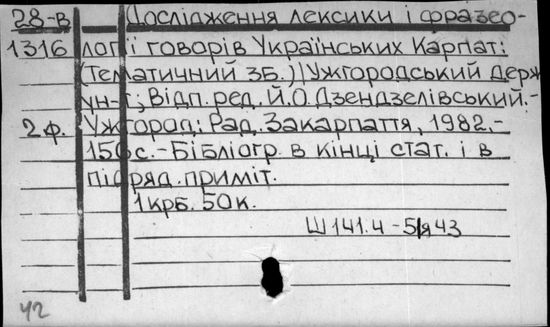 28-В Дослідження лексики і фразео-
1316 логії говорів Українських Карпат:
(Тематичний зб.) | Ужгородський держ
ун-т; Відп. ред. Й.О. Дзендзелівський.-
2ф. Ужгород: Рад. Закарпаття, 1982.-
156 с.- Бібліогр. в кінці стат. і в
підряд. приміт.
1 крб. 50 к.
Ш141.4-5/я43
42